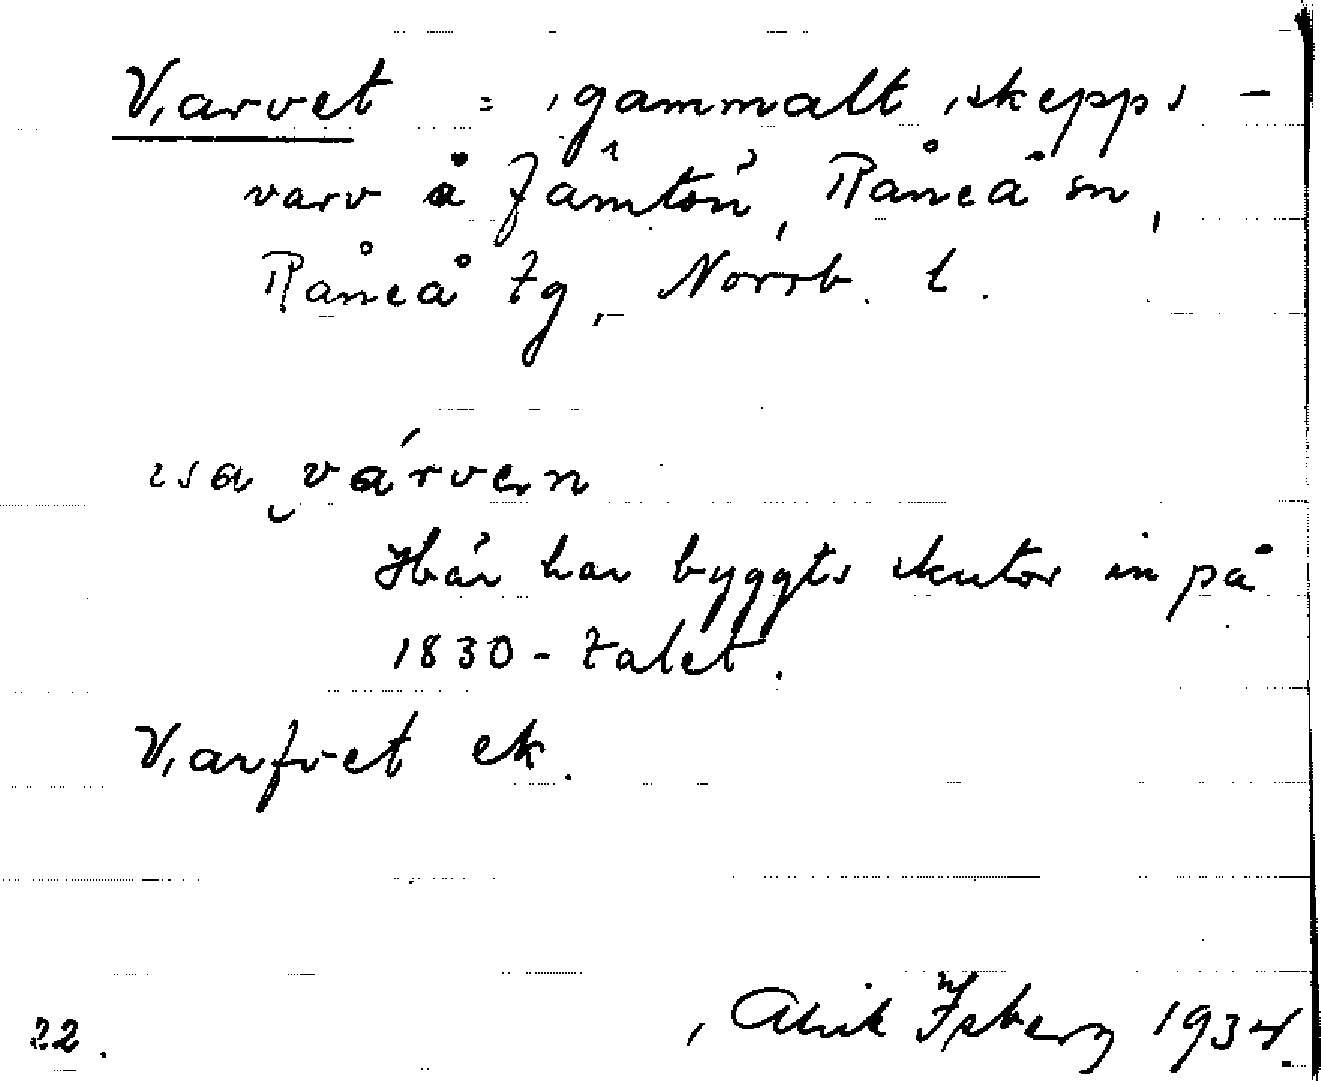 Varvet = gammalt skepps-
varv å Jämtön, Råneå sn,
Råneå tg, Norrb. l.
isa várven
Här har byggts skutor in på
1830-talet.
Varfvet ek.
22. Alrik Isberg 1934